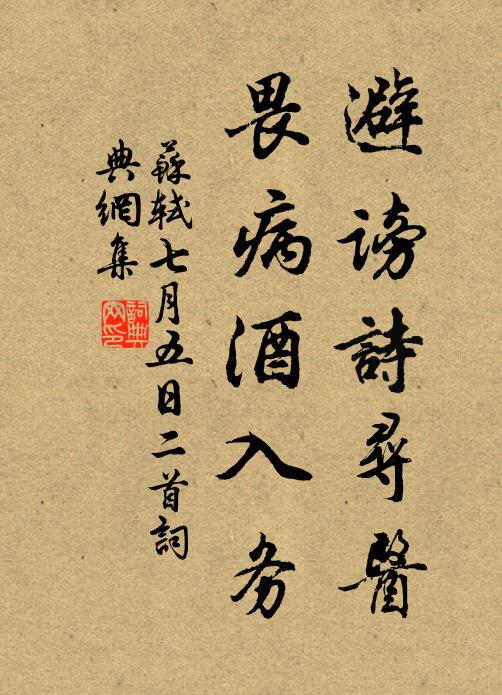 避謗詩尋醫
畏病酒入务
蘇軾七月五日二首詞
典網集
詞典
网印